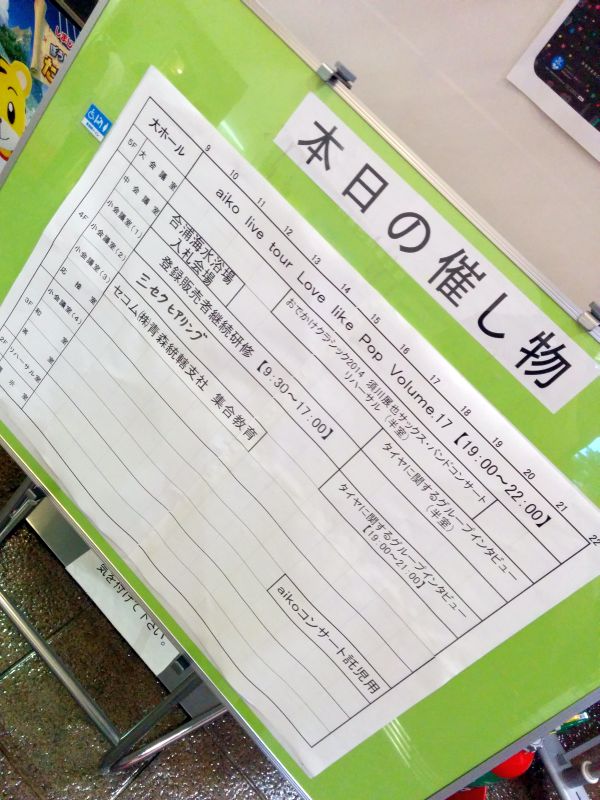 本日の催し物
9 10 11 12 13 14 15 16 17 18 19 20 21 22
大ホール
aiko live tour Love like Pop Volume.17【19:00～22:00】
5F 大会議室
合浦海水浴場
入札会場
おでかけクラシック2014 須川展也サックス・バンドコンサート
リハーサル (半室)
タイヤに関するグループインタビュー
(半室)
中会議室
登録販売者継続研修【9:30～17:00】
小会議室(1)
三セクヒアリング
タイヤに関するグループインタビュー
【19:00～21:00】
4F 小会議室(2)
セコム㈱青森統轄支社 集合教育
小会議室(3)
応接室
小会議室(4)
aikoコンサート託児用
3F 和室
2F リハーサル室
示室
気を付けて下さい。
しまじ